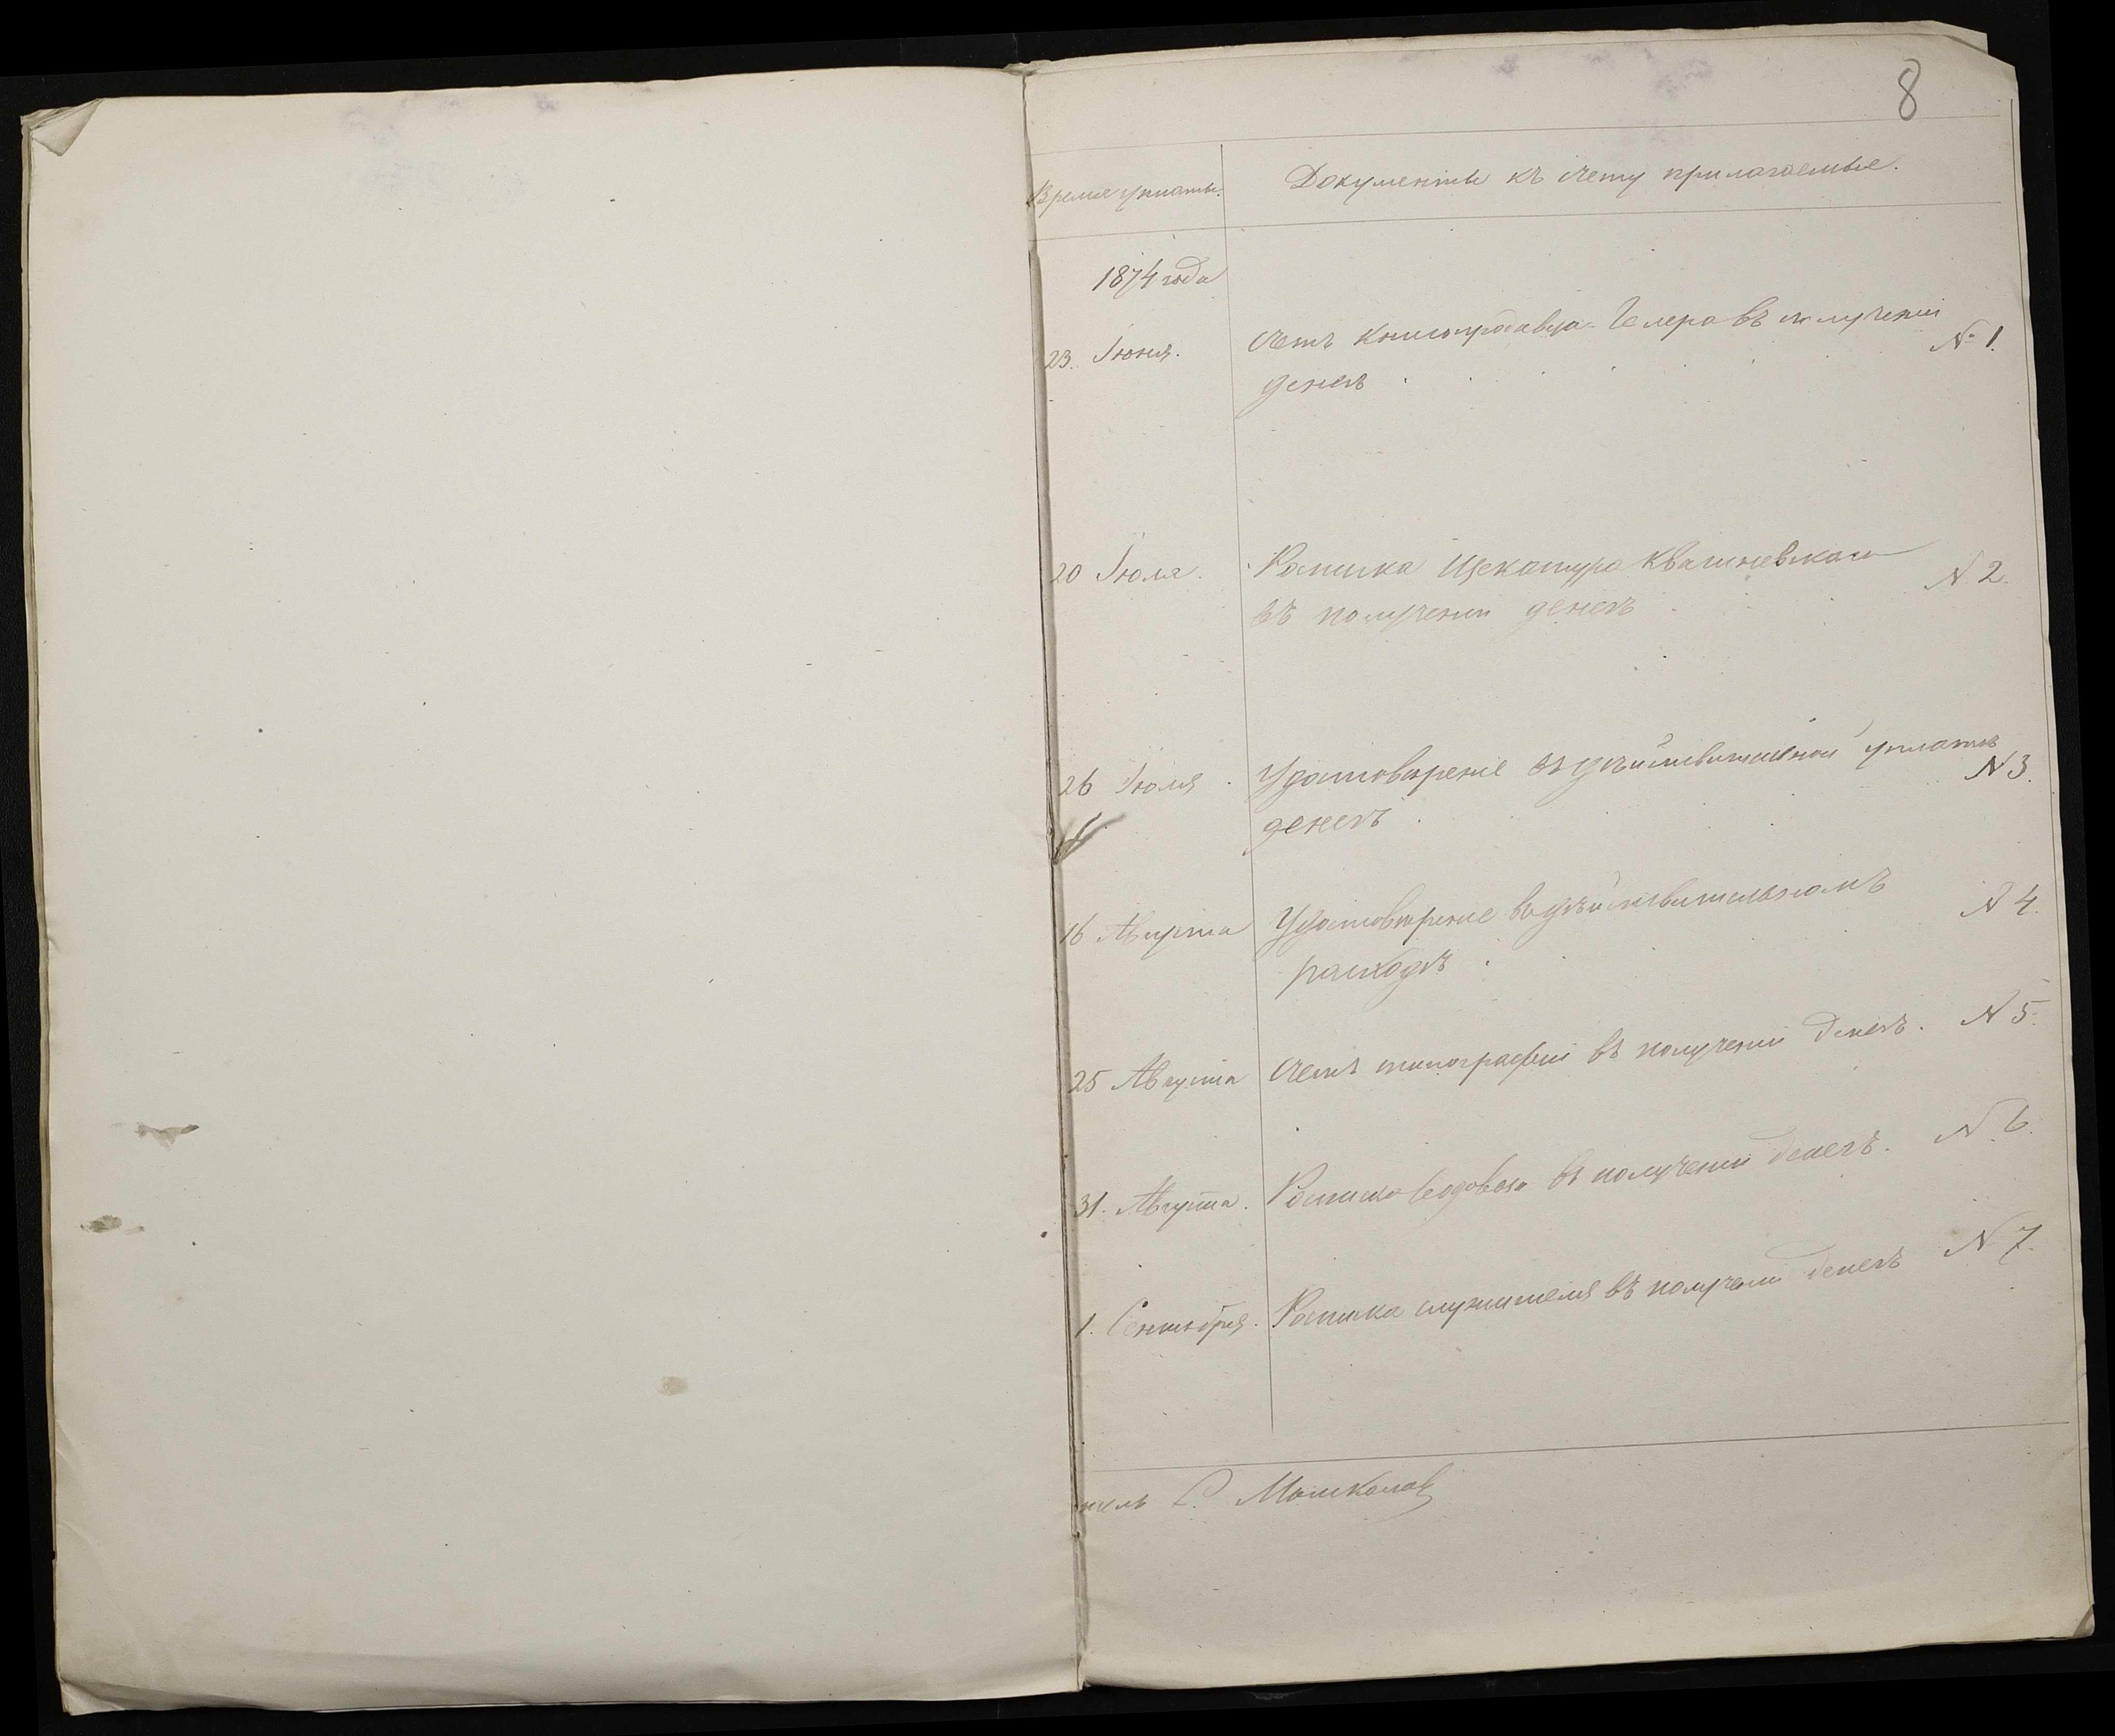 8
Время уплаты. Документы къ счету прилагаемые.
1874 года
23. Іюня. Счетъ книгопродавца Геллера въ полученіи
денегъ № 1.
20 Іюля. Росписка Щекатура Квашневскаго
въ полученіи денегъ № 2.
26 Іюля. Удостовѣреніе въ дѣйствительной уплатѣ
денегъ № 3.
16 Августа Удостовѣреніе въ дѣйствительномъ
расходѣ № 4.
25 Августа Счетъ типографіи въ полученіи денегъ. № 5.
31. Августа. Росписка въ полученіи денегъ. № 6.
1. Сентября. Росписка служителя въ полученіи денегъ № 7.
тель С.